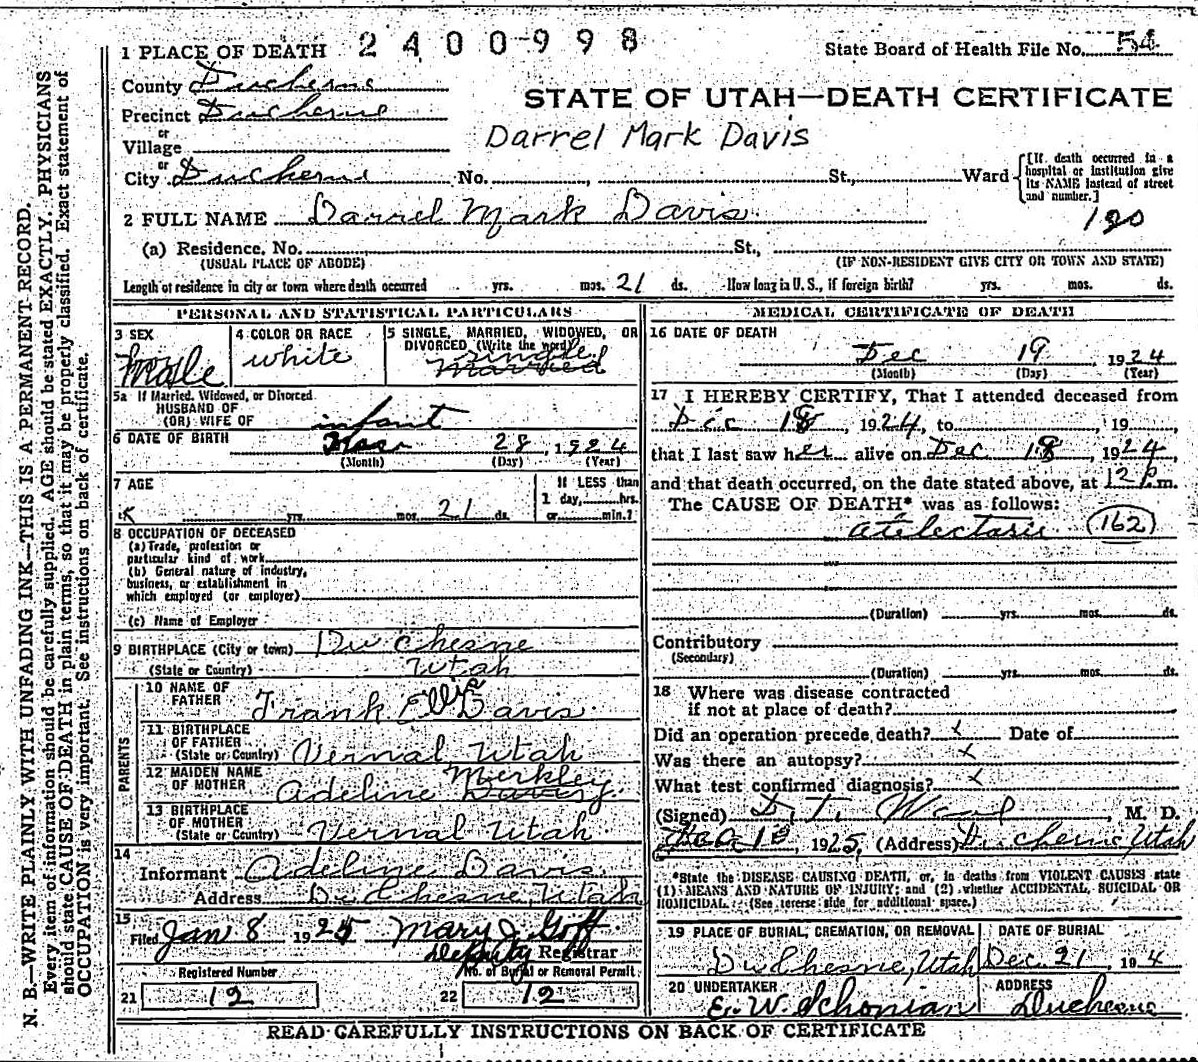 1 PLACE OF DEATH 2400-998 State Board of Health File No. 54
County Duchesne
STATE OF UTAH—DEATH CERTIFICATE
Precinct Duchesne
or
Village
Darrel Mark Davis
or
City Duchesne No. , St., Ward [If death occurred in a hospital or institution give its NAME instead of street and number.]
2 FULL NAME Darrel Mark Davis
120
(a) Residence, No. St.,
(USUAL PLACE OF ABODE) (IF NON-RESIDENT GIVE CITY OR TOWN AND STATE)
Length of residence in city or town where death occurred yrs. mos. 21 ds. How long in U. S., if foreign birth? yrs. mos. ds.
PERSONAL AND STATISTICAL PARTICULARS
3 SEX Male
4 COLOR OR RACE white
5 SINGLE, MARRIED, WIDOWED, OR DIVORCED (Write the word)
single
Married
5a If Married, Widowed, or Divorced
HUSBAND OF
(OR) WIFE OF infant
6 DATE OF BIRTH 28, 1924
(Month) (Day) (Year)
7 AGE
yrs. mos. 21 ds.
If LESS than
1 day, hrs.
or min.?
8 OCCUPATION OF DECEASED
(a) Trade, profession or
particular kind of work
(b) General nature of industry,
business, or establishment in
which employed (or employer)
(c) Name of Employer
9 BIRTHPLACE (City or town) Du Chesne
(State or Country) Utah
PARENTS
10 NAME OF
FATHER Frank Ellis Davis
11 BIRTHPLACE
OF FATHER
(State or Country) Vernal Utah
12 MAIDEN NAME
OF MOTHER Adeline Merkley
Davis
13 BIRTHPLACE
OF MOTHER
(State or Country) Vernal Utah
14
Informant Adeline Davis
Address Du Chesne, Utah
15
Filed Jan 8 1925 Mary J. Goff
Deputy Registrar
Registered Number No. of Burial or Removal Permit
21 12 22 12
MEDICAL CERTIFICATE OF DEATH
16 DATE OF DEATH
Dec 19 1924
(Month) (Day) (Year)
17 I HEREBY CERTIFY, That I attended deceased from
Dec 18, 1924, to , 19
that I last saw her alive on Dec 18, 1924,
and that death occurred, on the date stated above, at 12 P.m.
The CAUSE OF DEATH* was as follows:
atelectasis 162
(Duration) yrs. mos. ds.
Contributory
(Secondary)
(Duration) yrs. mos. ds.
18 Where was disease contracted
if not at place of death?
Did an operation precede death? x Date of
Was there an autopsy? x
What test confirmed diagnosis? x
(Signed) M. D.
1925, (Address) Duchesne Utah
*State the DISEASE CAUSING DEATH, or, in deaths from VIOLENT CAUSES state
(1) MEANS AND NATURE OF INJURY; and (2) whether ACCIDENTAL, SUICIDAL OR
HOMICIDAL. (See reverse side for additional space.)
19 PLACE OF BURIAL, CREMATION, OR REMOVAL DATE OF BURIAL
Du Chesne, Utah Dec. 21, 19 4
20 UNDERTAKER ADDRESS
E. W. Schonian Duchesne
READ CAREFULLY INSTRUCTIONS ON BACK OF CERTIFICATE
N. B.—WRITE PLAINLY WITH UNFADING INK—THIS IS A PERMANENT RECORD.
Every item of information should be carefully supplied. AGE should be stated EXACTLY. PHYSICIANS
should state CAUSE OF DEATH in plain terms, so that it may be properly classified. Exact statement of
OCCUPATION is very important. See instructions on back of certificate.